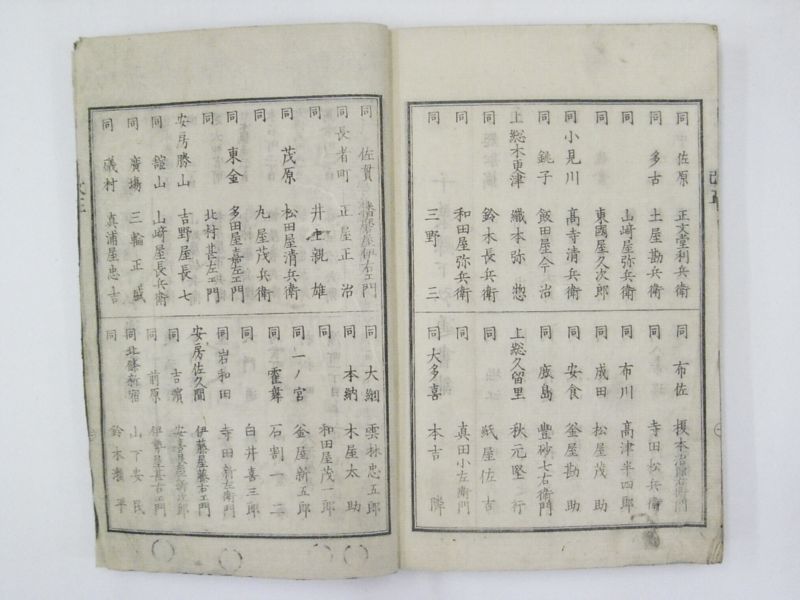 同 佐原 正文堂利兵衛
同 多古 土屋勘兵衛
同 山﨑屋弥兵衛
同 東國屋久次郎
同 小見川 髙寺清兵衛
同 銚子 飯田屋今治
上総木更津 織本弥惣
同 鈴木長兵衛
同 和田屋弥兵衛
同 三野三
同 布佐 榎本治郎右衛門
同 寺田松兵衛
同 布川 髙津半四郎
同 成田 松屋茂助
同 安食 釜屋勘助
同 廣島 豊砂七右衛門
上総久留里 秋元堅行
同 紙屋佐吉
同 真田小左衛門
同 大多喜 本吉隣
同 佐貫 播磨屋伊右エ門
同 長者町 正屋正治
同 井上親雄
同 茂原 松田屋清兵衛
同 丸屋茂兵衛
同 東金 多田屋嘉左エ門
同 北村甚左エ門
安房勝山 吉野屋長七
同 舘山 山﨑屋長兵衛
同 廣場 三輪正
同 磯村 真浦屋忠吉
同 大網 雲林忠五郎
同 本納 木屋太助
同 和田屋茂一郎
同 一ノ宮 釜屋新五郎
同 石割一二
同 白井喜三郎
同 岩和田 寺田新左衛門
安房佐久間 伊藤屋藤右エ門
同 吉濱 安喜
同 前原 伊勢屋甚右エ門
同 北條新宿 山下安民
同 鈴木 平